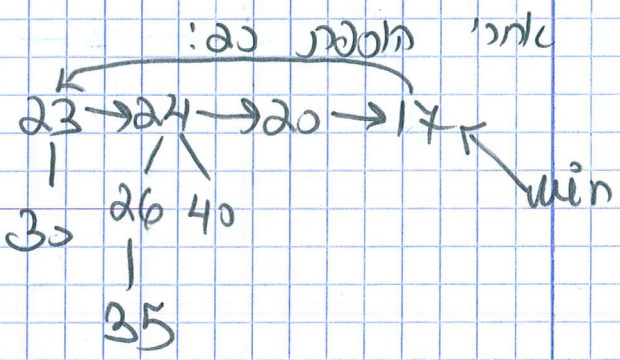 אחרי הוספת 20:
23 → 24 → 20 → 17
min
30 26 40
35